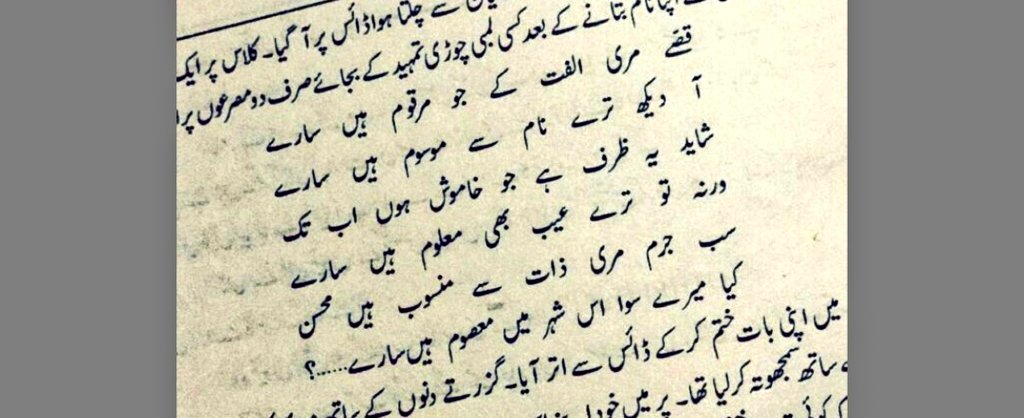 سے چلتا ہوا ڈائس پر آ گیا۔ کلاس پر ایک
بتانے کے بعد کسی لمبی چوڑی تمہید کے بجائے صرف دو مصرعوں پر
قصے مری الفت کے جو مرقوم ہیں سارے
آ دیکھ ترے نام سے موسوم ہیں سارے
شاید یہ ظرف ہے جو خاموش ہوں اب تک
ورنہ تو ترے عیب بھی معلوم ہیں سارے
سب جرم مری ذات سے منسوب ہیں محسن
کیا میرے سوا اس شہر میں معصوم ہیں سارے......؟
میں اپنی بات ختم کر کے ڈائس سے اتر آیا۔ گزرتے دنوں کے ساتھ
ساتھ سمجھوتہ کر لیا تھا۔ پر میں خود